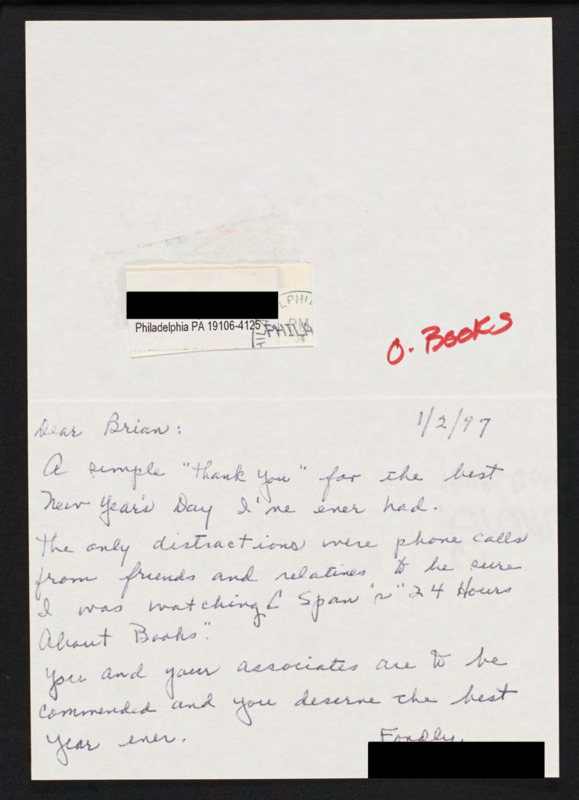 PHILA
Philadelphia PA 19106-4125
O. BOOKS
Dear Brian: 1/2/97
A simple "thank you" for the best
New Year's Day I've ever had.
The only distractions were phone calls
from friends and relatives to be sure
I was watching C Span's "24 Hours
About Books".
You and your associates are to be
commended and you deserve the best
Year ever.
Fondly,